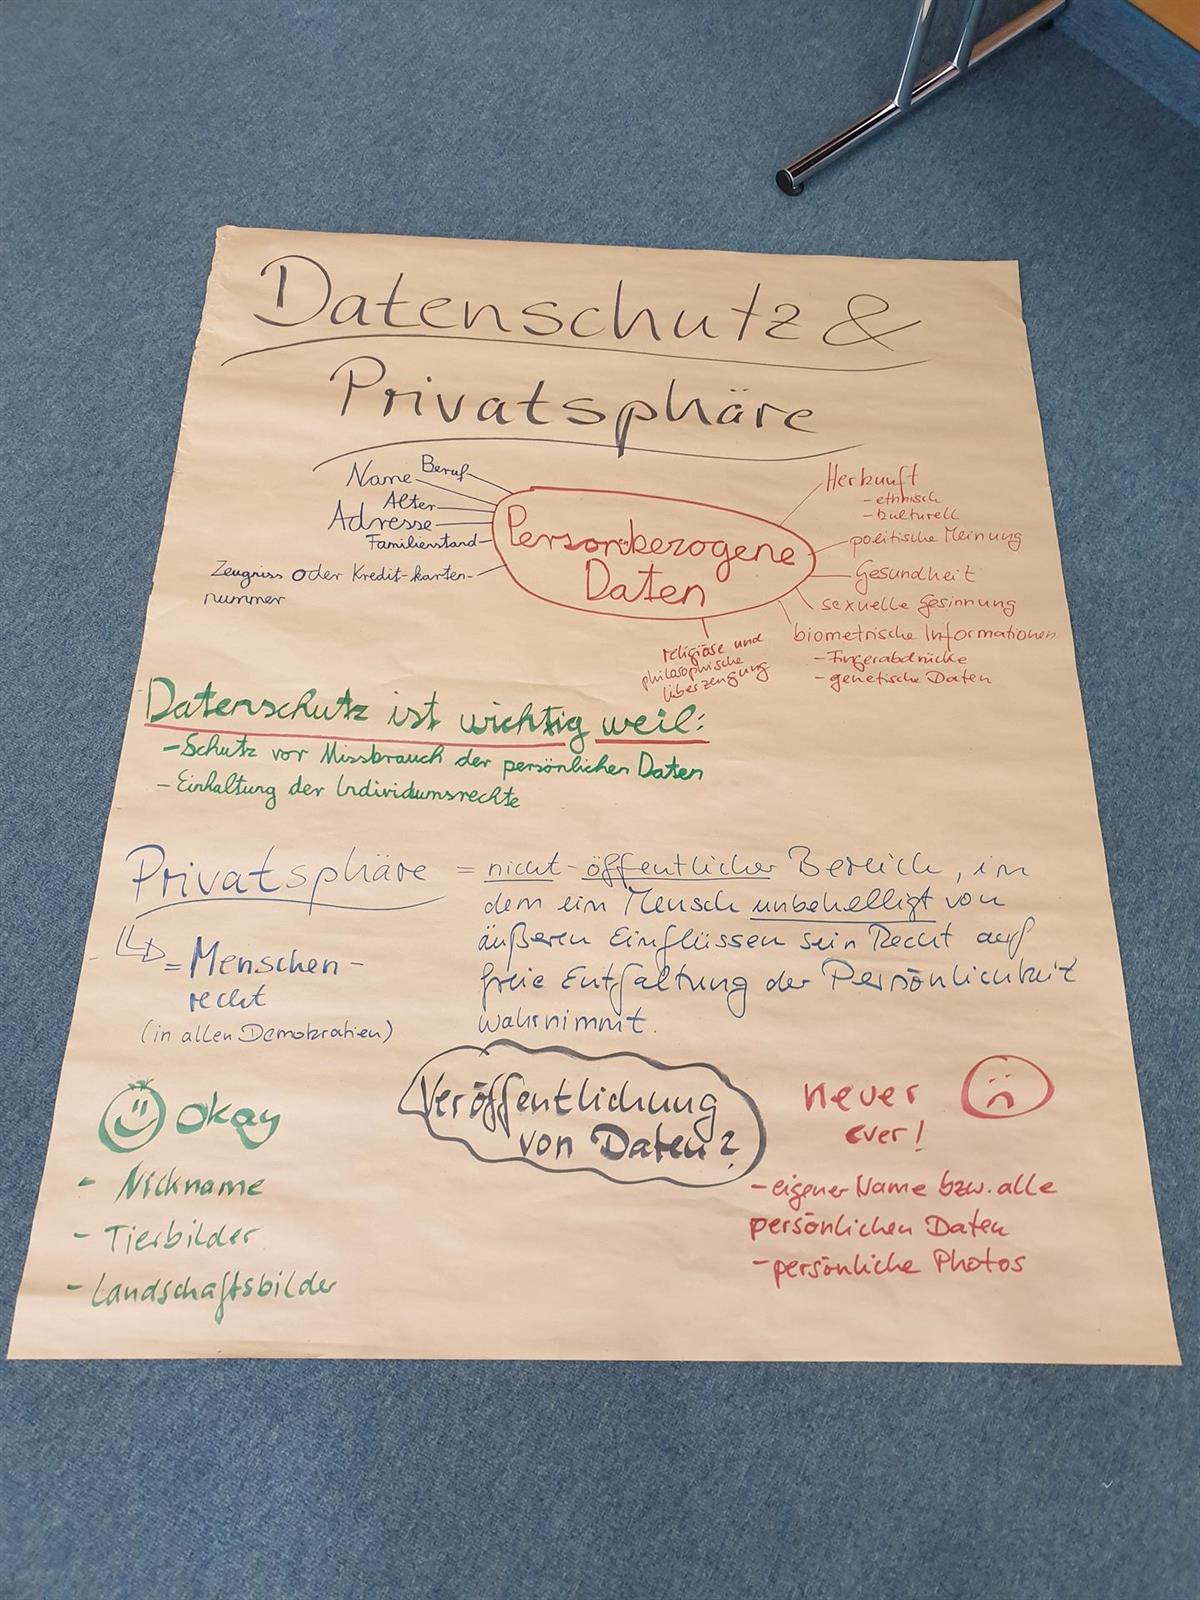 Datenschutz &
Privatsphäre
Beruf
Name
Alter
Adresse
Familienstand
Zeugniss oder Kredit-karten-
nummer
Personbezogene
Daten
Herkunft
- ethnisch
- kulturell
politische Meinung
Gesundheit
sexuelle Gesinnung
biometrische Informationen
- Fingerabdrücke
- genetische Daten
religiöse und
philosophische
Überzeugung
Datenschutz ist wichtig weil:
- Schutz vor Missbrauch der persönlichen Daten
- Einhaltung der Individumsrechte
Privatsphäre = nicht-öffentlicher Bereich, in
dem ein Mensch unbehelligt von
äußeren Einflüssen sein Recht auf
freie Entfaltung der Persönlichkeit
wahrnimmt.
= Menschen-
recht
(in allen Demokratien)
Veröffentlichung
von Daten?
okay
- Nickname
- Tierbilder
- Landschaftsbilder
never
ever!
- eigener Name bzw. alle
persönlichen Daten
- persönliche Photos